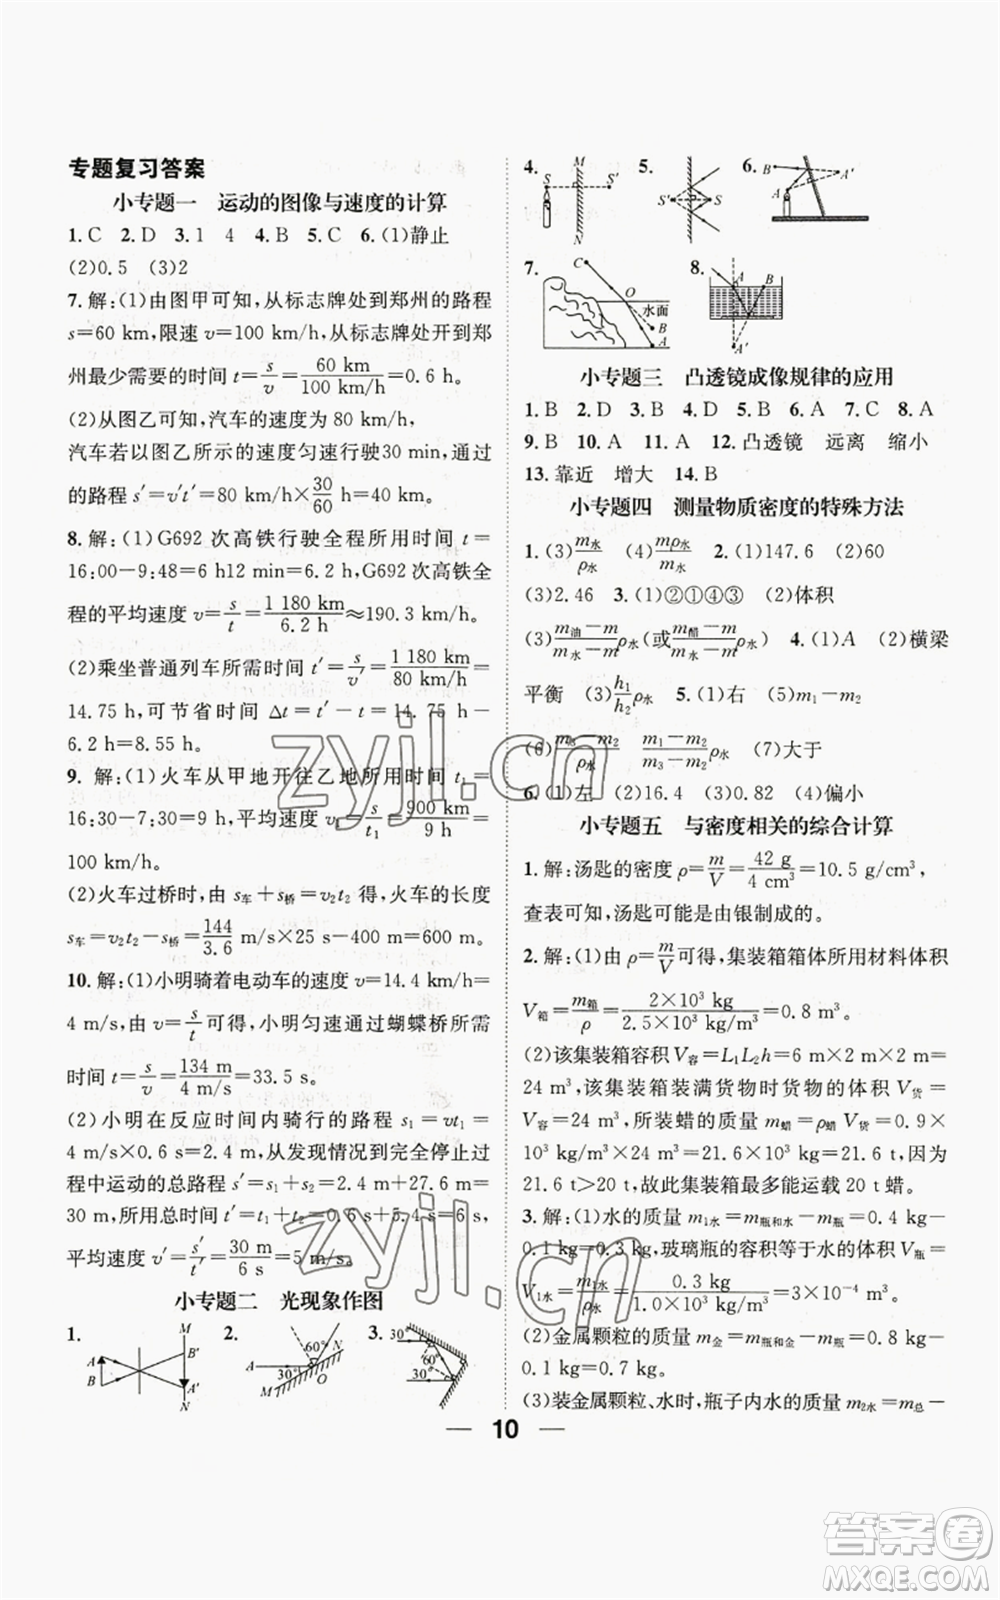 专题复习答案
小专题一　运动的图像与速度的计算
1.C　2.D　3.1　4　4.B　5.C　6.(1)静止
(2)0.5　(3)2
7.解:(1)由图甲可知,从标志牌处到郑州的路程
s=60 km,限速 v=100 km/h,从标志牌处开到郑
州最少需要的时间 t=s/v=60 km/100 km/h=0.6 h.
(2)从图乙可知,汽车的速度为 80 km/h,
汽车若以图乙所示的速度匀速行驶30 min,通过
的路程 s′=v′t′=80 km/h×30/60 h=40 km.
8.解:(1)G692 次高铁行驶全程所用时间 t=
16:00-9:48=6 h12 min=6.2 h,G692 次高铁全
程的平均速度 v=s/t=1 180 km/6.2 h≈190.3 km/h.
(2)乘坐普通列车所需时间 t′=s/v′=1 180 km/80 km/h=
14.75 h,可节省时间 Δt=t′-t=14.75 h-
6.2 h=8.55 h.
9.解:(1)火车从甲地开往乙地所用时间 t₁=
16:30-7:30=9 h,平均速度 v₁=s/t₁=900 km/9 h=
100 km/h.
(2)火车过桥时,由 s车+s桥=v₂t₂ 得,火车的长度
s车=v₂t₂-s桥=144/3.6 m/s×25 s-400 m=600 m.
10.解:(1)小明骑着电动车的速度 v=14.4 km/h=
4 m/s,由 v=s/t可得,小明匀速通过蝴蝶桥所需
时间 t=s/v=134 m/4 m/s=33.5 s.
(2)小明在反应时间内骑行的路程 s₁=vt₁=
4 m/s×0.6 s=2.4 m,从发现情况到停止,此过
程中运动的总路程 s′=s₁+s₂=2.4 m+27.6 m=
30 m,所用总时间 t′=t₁+t₂=0.6 s+5.4 s=6 s,
平均速度 v′=s′/t′=30 m/6 s=5 m/s.
小专题二　光现象作图
1.
A
B
M
B′
A′
N
2.
A
60°
30°
N
O
M
3.
30°
60°
30°
4.
S
M
S′
N
5.
S′
S
6.
B
A
A′
B′
7.
C
O
水面
B
A
8.
A
B
A′
小专题三　凸透镜成像规律的应用
1.B　2.A　3.B　4.D　5.B　6.A　7.C　8.A
9.B　10.A　11.A　12.凸透镜　远离　缩小
13.靠近　增大　14.B
小专题四　测量物质密度的特殊方法
1.(3)m水/ρ水　(4)mρ水/m水　2.(1)147.6　(2)60
(3)2.46　3.(1)②①④③　(2)体积
(3)m油-m/m水-m ρ水(或m醋-m/m水-m ρ水)　4.(1)A　(2)横梁
平衡　(3)h₁/h₂ ρ水　5.(1)右　(5)m₁-m₂
(6)m₃-m₂/ρ水　m₁-m₂/m₃-m₂ ρ水　(7)大于
6.(1)左　(2)16.4　(3)0.82　(4)偏小
小专题五　与密度相关的综合计算
1.解:汤匙的密度 ρ=m/V=42 g/4 cm³=10.5 g/cm³,
查表可知,汤匙可能是由银制成的。
2.解:(1)由 ρ=m/V可得,集装箱箱体所用材料体积
V箱=m箱/ρ=2×10³ kg/2.5×10³ kg/m³=0.8 m³.
(2)该集装箱容积 V容=L₁L₂h=6 m×2 m×2 m=
24 m³,该集装箱装满货物时货物的体积 V货=
V容=24 m³,所装蜡的质量 m蜡=ρ蜡V货=0.9×
10³ kg/m³×24 m³=21.6×10³ kg=21.6 t,
21.6 t>20 t,故此集装箱最多能运载 20 t蜡。
3.解:(1)水的质量 m₁水=m瓶和水-m瓶=0.4 kg-
0.1 kg=0.3 kg,玻璃瓶的容积等于水的体积V瓶=
V₁水=m₁水/ρ水=0.3 kg/1.0×10³ kg/m³=3×10⁻⁴ m³
(2)金属颗粒的质量 m金=m瓶和金-m瓶=0.8 kg-
0.1 kg=0.7 kg.
(3)装金属颗粒、水时,瓶子内水的质量 m₂水=m总-
10
zyjl.cn
zyjl.cn
答案卷
MXQE.COM